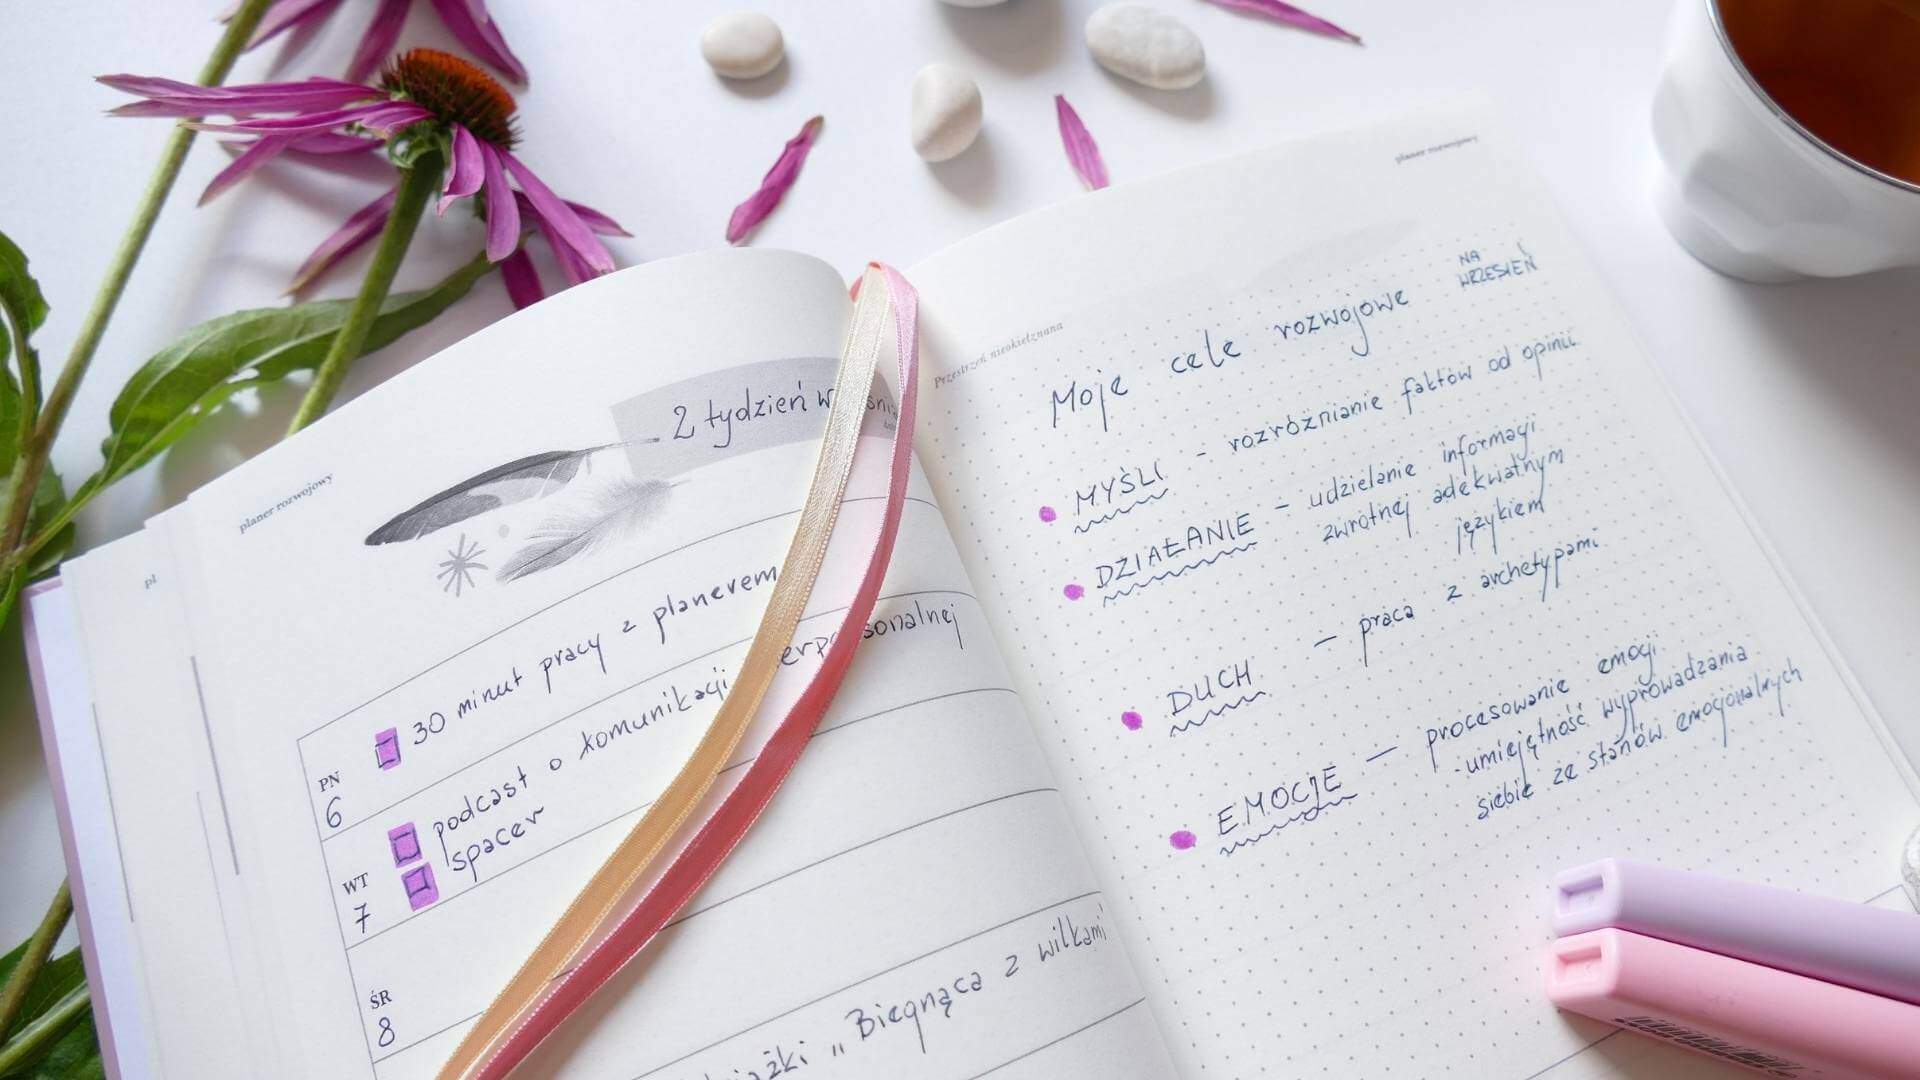 planer rozwojowy
2 tydzień
30 minut pracy z planerem
PN
6
podcast o komunikacji
spacer
WT
7
ŚR
8
"Biegnąca z wilkami"
planer rozwojowy
Przestrzeń nieokiełznana
NA
WRZESIEŃ
Moje cele rozwojowe
MYŚLI - rozróżnianie faktów od opinii
DZIAŁANIE - udzielanie informacji
zwrotnej adekwatnym
językiem
DUCH - praca z archetypami
EMOCJE - procesowanie emocji
- umiejętność wyprowadzania
siebie ze stanów emocjonalnych